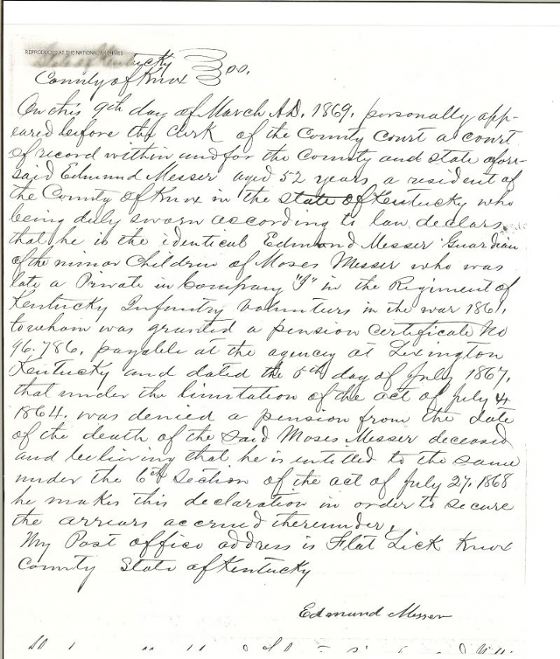 REPRODUCED AT THE NATIONAL ARCHIVES
State of Kentucky
County of Knox SS.
On this 9th day of March A.D. 1869, personally app-
eared before the Clerk of the County Court a court
of record within and for the County and state afore-
said Edmund Messer aged 52 years, a resident of
the County of Knox in the state of Kentucky who
being duly sworn according to law, declars
that he is the identical Edmond Messer Guardian
of the minor Children of Moses Messer who was
late a Private in Company "I" in the Regiment of
Kentucky Infantry Volunteers in the war 1861,
to whom was granted a pension Certificate No
96.786, payable at the agency at Lexington
Kentucky and dated the 5th day of July 1867,
that under the limitation of the act of July 4
1864, was denied a pension from the date
of the death of the said Moses Messer deceased
and believing that he is entitled to the same
under the 6th Section of the act of July 27, 1868
he makes this declaration in order to secure
the arriars accrued thereunder,
My Post office address is Flat Lick Knox
County State of Kentucky
Edmund Messer